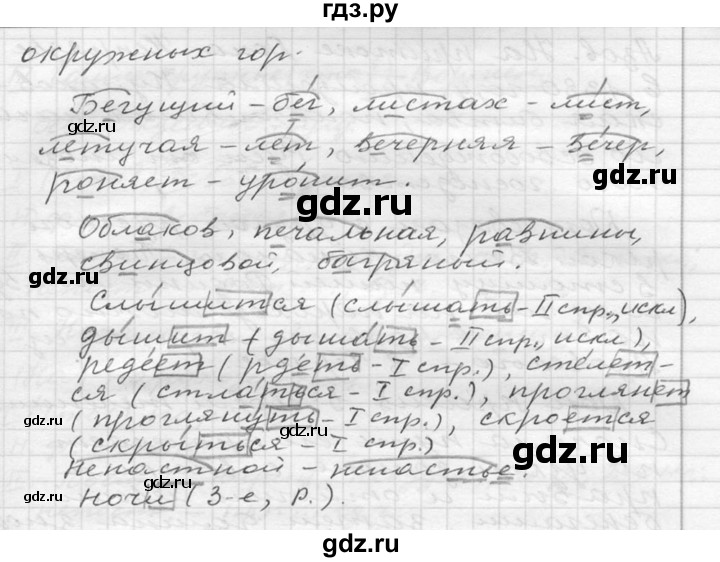 гдз.ру
окружных гор.
Бегущий – бег, листах – лист,
летучая – лёт, вечерняя – вечер,
роняет – уронит.
Облаков, печальная, равнины,
свинцовой, багряный.
Слышится (слышать – II спр., искл),
дышит (дышать – II спр., искл),
редеет (рдеть – I спр.), стелет-
ся (стлаться – I спр.), проглянет
(проглянуть – I спр.), скроется
(скрыться – I спр.)
Ненастной – ненастье.
Ночи (3-е, Р.).
gdz.ru
gdz.ru
gdz.ru
gdz.ru
gdz.ru
gdz.ru
gdz.ru
gdz.ru
gdz.ru
gdz.ru